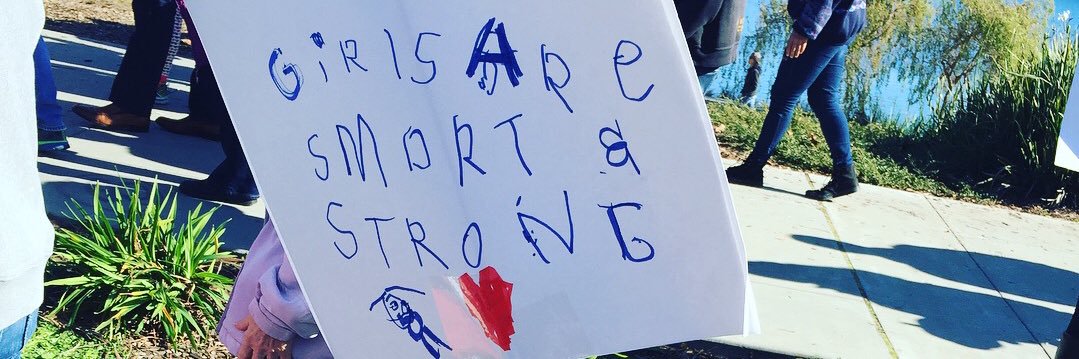 GiRlS ARe
SMART &
STRONG